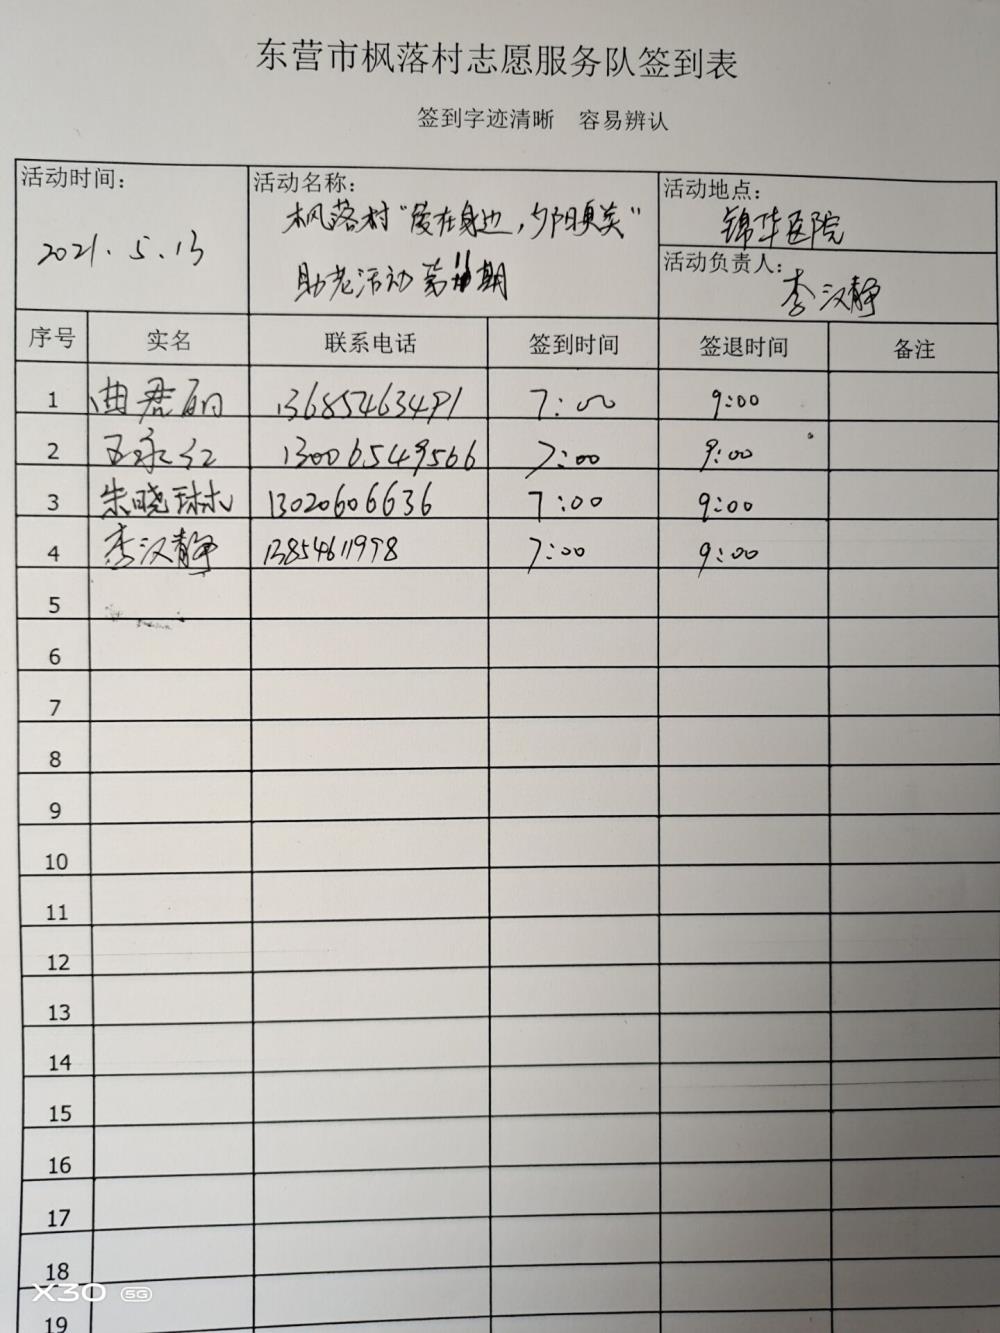 东营市枫落村志愿服务队签到表
签到字迹清晰 容易辨认
活动时间：
2021.5.13
活动名称：
枫落村“爱在身边，夕阳更美”
助老活动第期
活动地点：
锦华医院
活动负责人：
李汉静
序号 实名 联系电话 签到时间 签退时间 备注
1 曲君丽 13685463491 7:00 9:00
2 王永红 13006549566 7:00 9:00
3 朱晓琳 13020606636 7:00 9:00
4 李汉静 13854611998 7:00 9:00
5
6
7
8
9
10
11
12
13
14
15
16
17
18
19
X30 5G